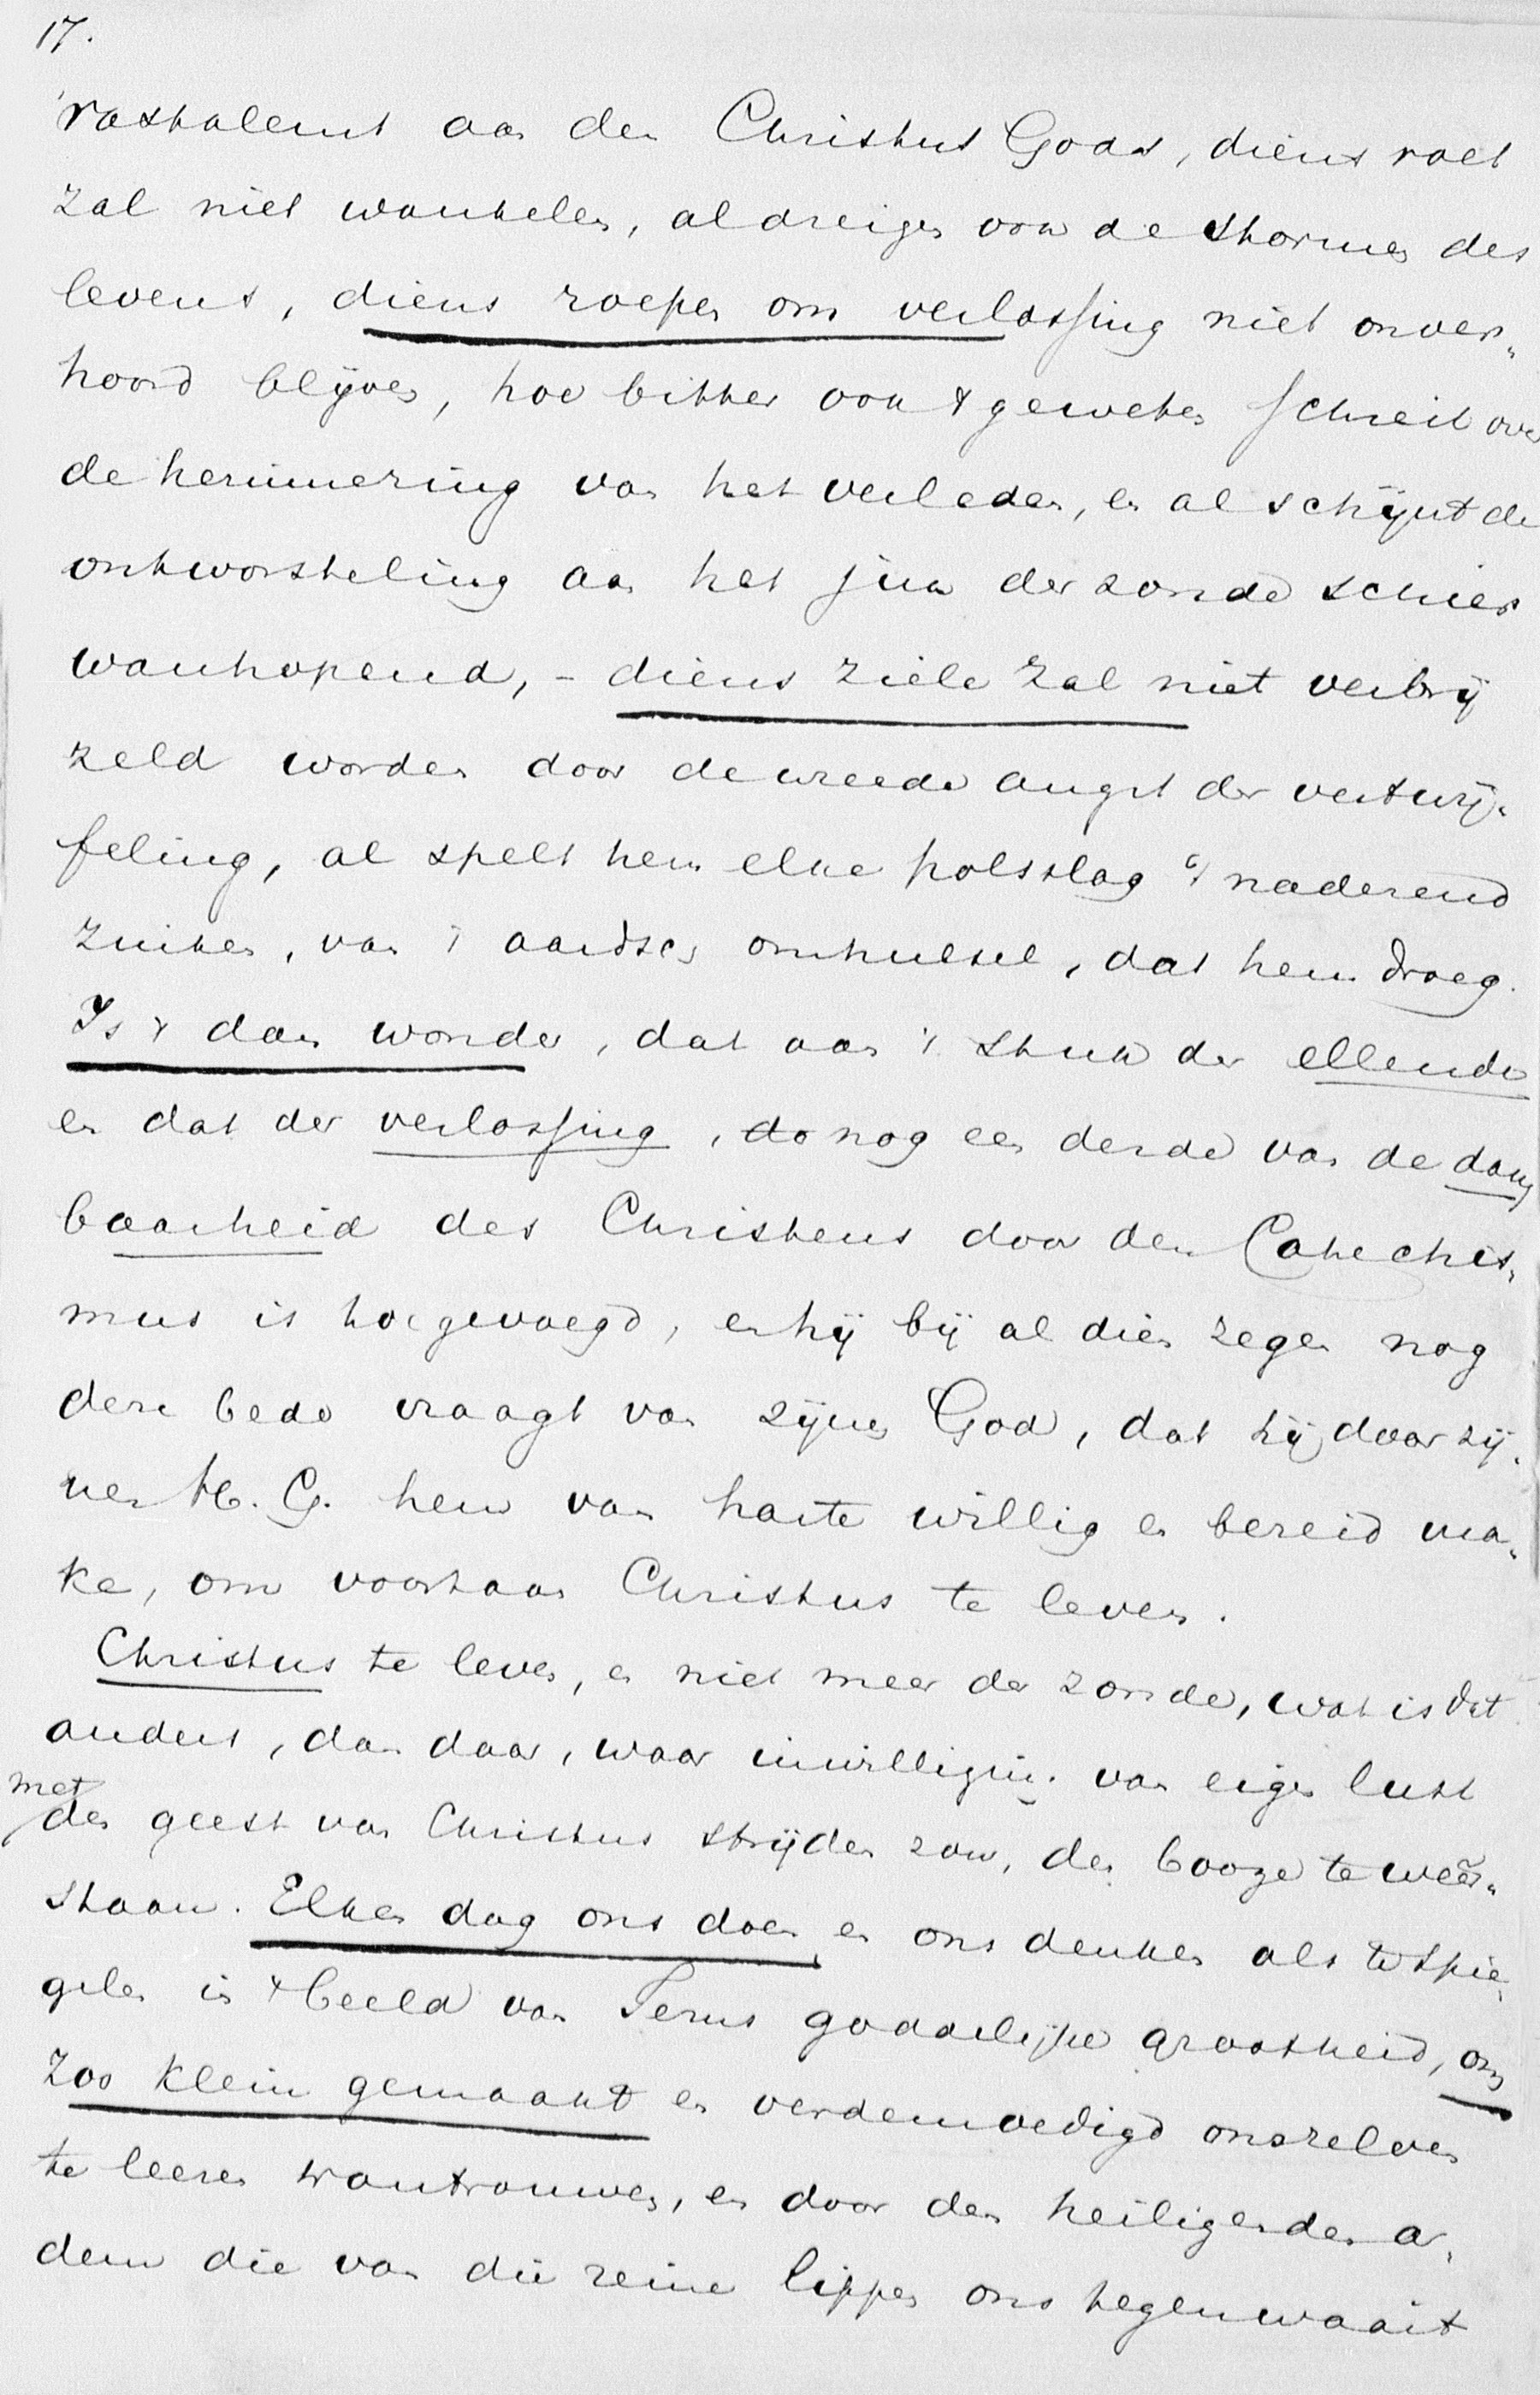 17.
vastklemt aan den Christus Gods, diens voet
zal niet wankelen, al dreigen ook de stormen des
levens, diens roepen om verlossing niet onver„
hoord blijven, hoe bitter ook 't geweten schreit over
de herinnering van het verleden, en al schijnt de
ontworsteling aan het juk der zonde schier
wanhopend, – diens ziele zal niet verbrij
zeld worden door de wreede angst der vertwij„
feling, al spelt hem elke polsslag 't naderend
zinken, van 't aardsch omhulsel, dat hem droeg.
Is 't dan wonder, dat aan 't stuk der ellende
en dat der verlossing, do nog een derde van de dank
baarheid des Christens door den Catechis„
mus is toegevoegd, en hij bij al dien zegen nog
dere bede vraagt van zijnen God, dat hij door zij„
nen H. G. hem van harte willig en bereid ma„
ke, om voortaan Christus te leven.
Christus te leven, en niet meer der zonde, wat is dat
anders, dan daar, waar inwilliging van eigen lust
met
den geest van Christus strijden zou, den booze te weêr„
staan. Elken dag ons doen en ons denken als te spie„
gelen in 't beeld van Jezus goddelijke grootheid, om
zoo klein gemaakt en verdemoedigd onszelven
te leeren wantrouwen, en door den heiligenden a„
dem die van die reine lippen ons tegenwaait